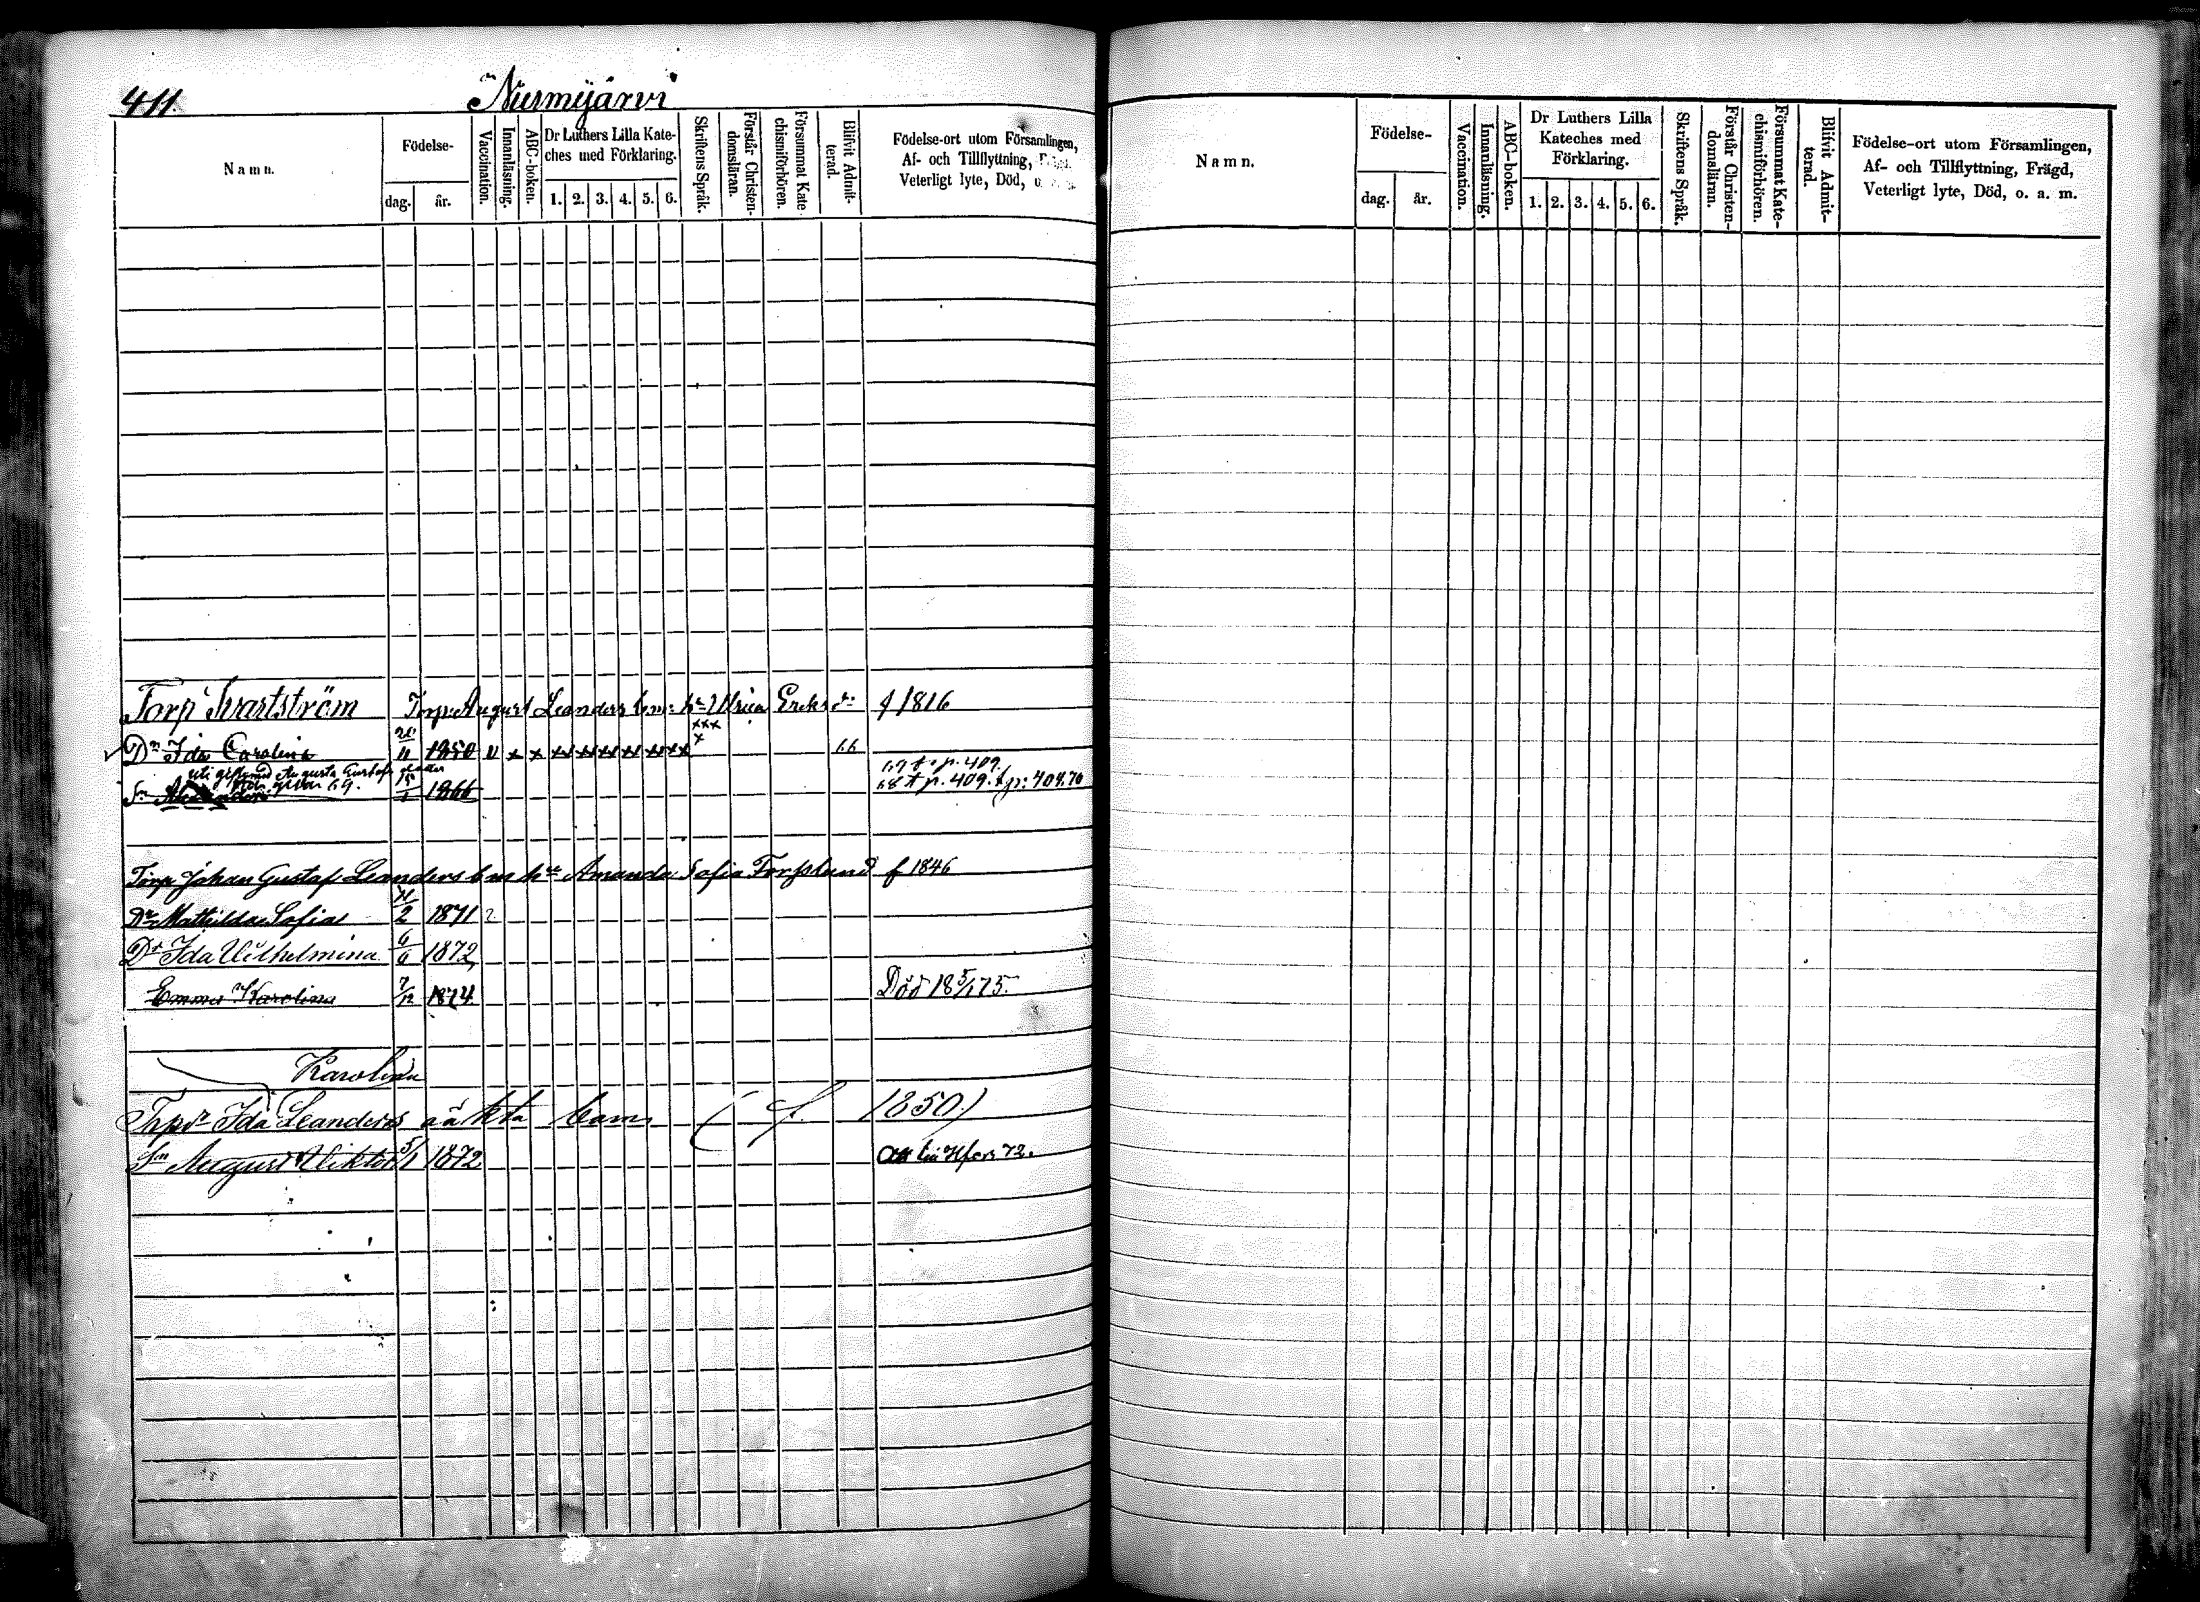 411.
Nurmijärvi
Namn.
Födelse-
dag.
år.
Vaccination.
Innanläsning.
ABC-boken.
Dr Luthers Lilla Kate-
ches med Förklaring.
1. 2. 3. 4. 5. 6.
Skriftens Språk.
Förstår Christen-
domsläran.
Försummat Kate
chismiförhören.
Blifvit Admit-
terad.
Födelse-ort utom Församlingen,
Af- och Tillflyttning,
Veterligt lyte, Död, o.
Torp Svartström Torp. August Leanders b.m. Ulrica Eriksdr f 1816
Dr Ida Carolina 11 1850 v x x xx xx xx xx xx xx x 66
69 t. p. 409.
Sn 15 1866 68 t p. 409. t p: 408.70
Torp Johan Gustaf Leanders b m hu Amanda Sofia Forsslund f 1846
Dr Mathilda Sofia 2 1871
Dr Ida Vilhelmina 6/6 1872
Emma Karolina 7/12 1874 Död 18 5/1 75.
Karolina
Ida Leanders oäkta barn (f. 1850)
Sn August Viktor 5/1 1872 Hfors 72.
Namn.
Födelse-
dag.
år.
Vaccination.
Innanläsning.
ABC-boken.
Dr Luthers Lilla
Kateches med
Förklaring.
1. 2. 3. 4. 5. 6.
Skriftens Språk.
Förstår Christen-
domsläran.
Försummat Kate-
chismiförhören.
Blifvit Admit-
terad.
Födelse-ort utom Församlingen,
Af- och Tillflyttning, Frägd,
Veterligt lyte, Död, o. a. m.